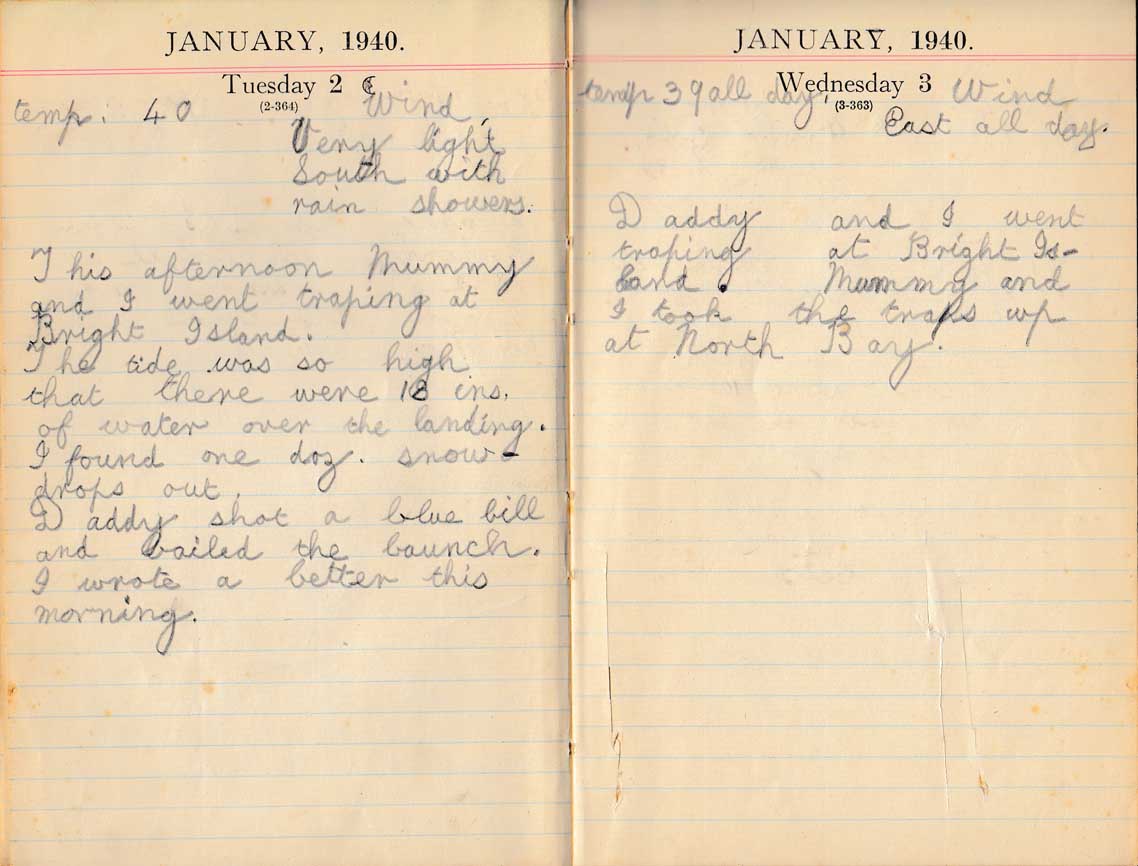 JANUARY, 1940.
Tuesday 2 ☾
(2-364)
temp. 40 Wind,
Very light
South with
rain showers.
This afternoon Mummy
and I went traping at
Bright Island.
The tide was so high
that there were 18 ins.
of water over the landing.
I found one doz. snow-
drops out.
Daddy shot a blue bill
and bailed the launch.
I wrote a letter this
morning.
JANUARY, 1940.
Wednesday 3
(3-363)
temp 39 all day. Wind
East all day.
Daddy and I went
traping at Bright Is-
land. Mummy and
I took the traps up
at North Bay.